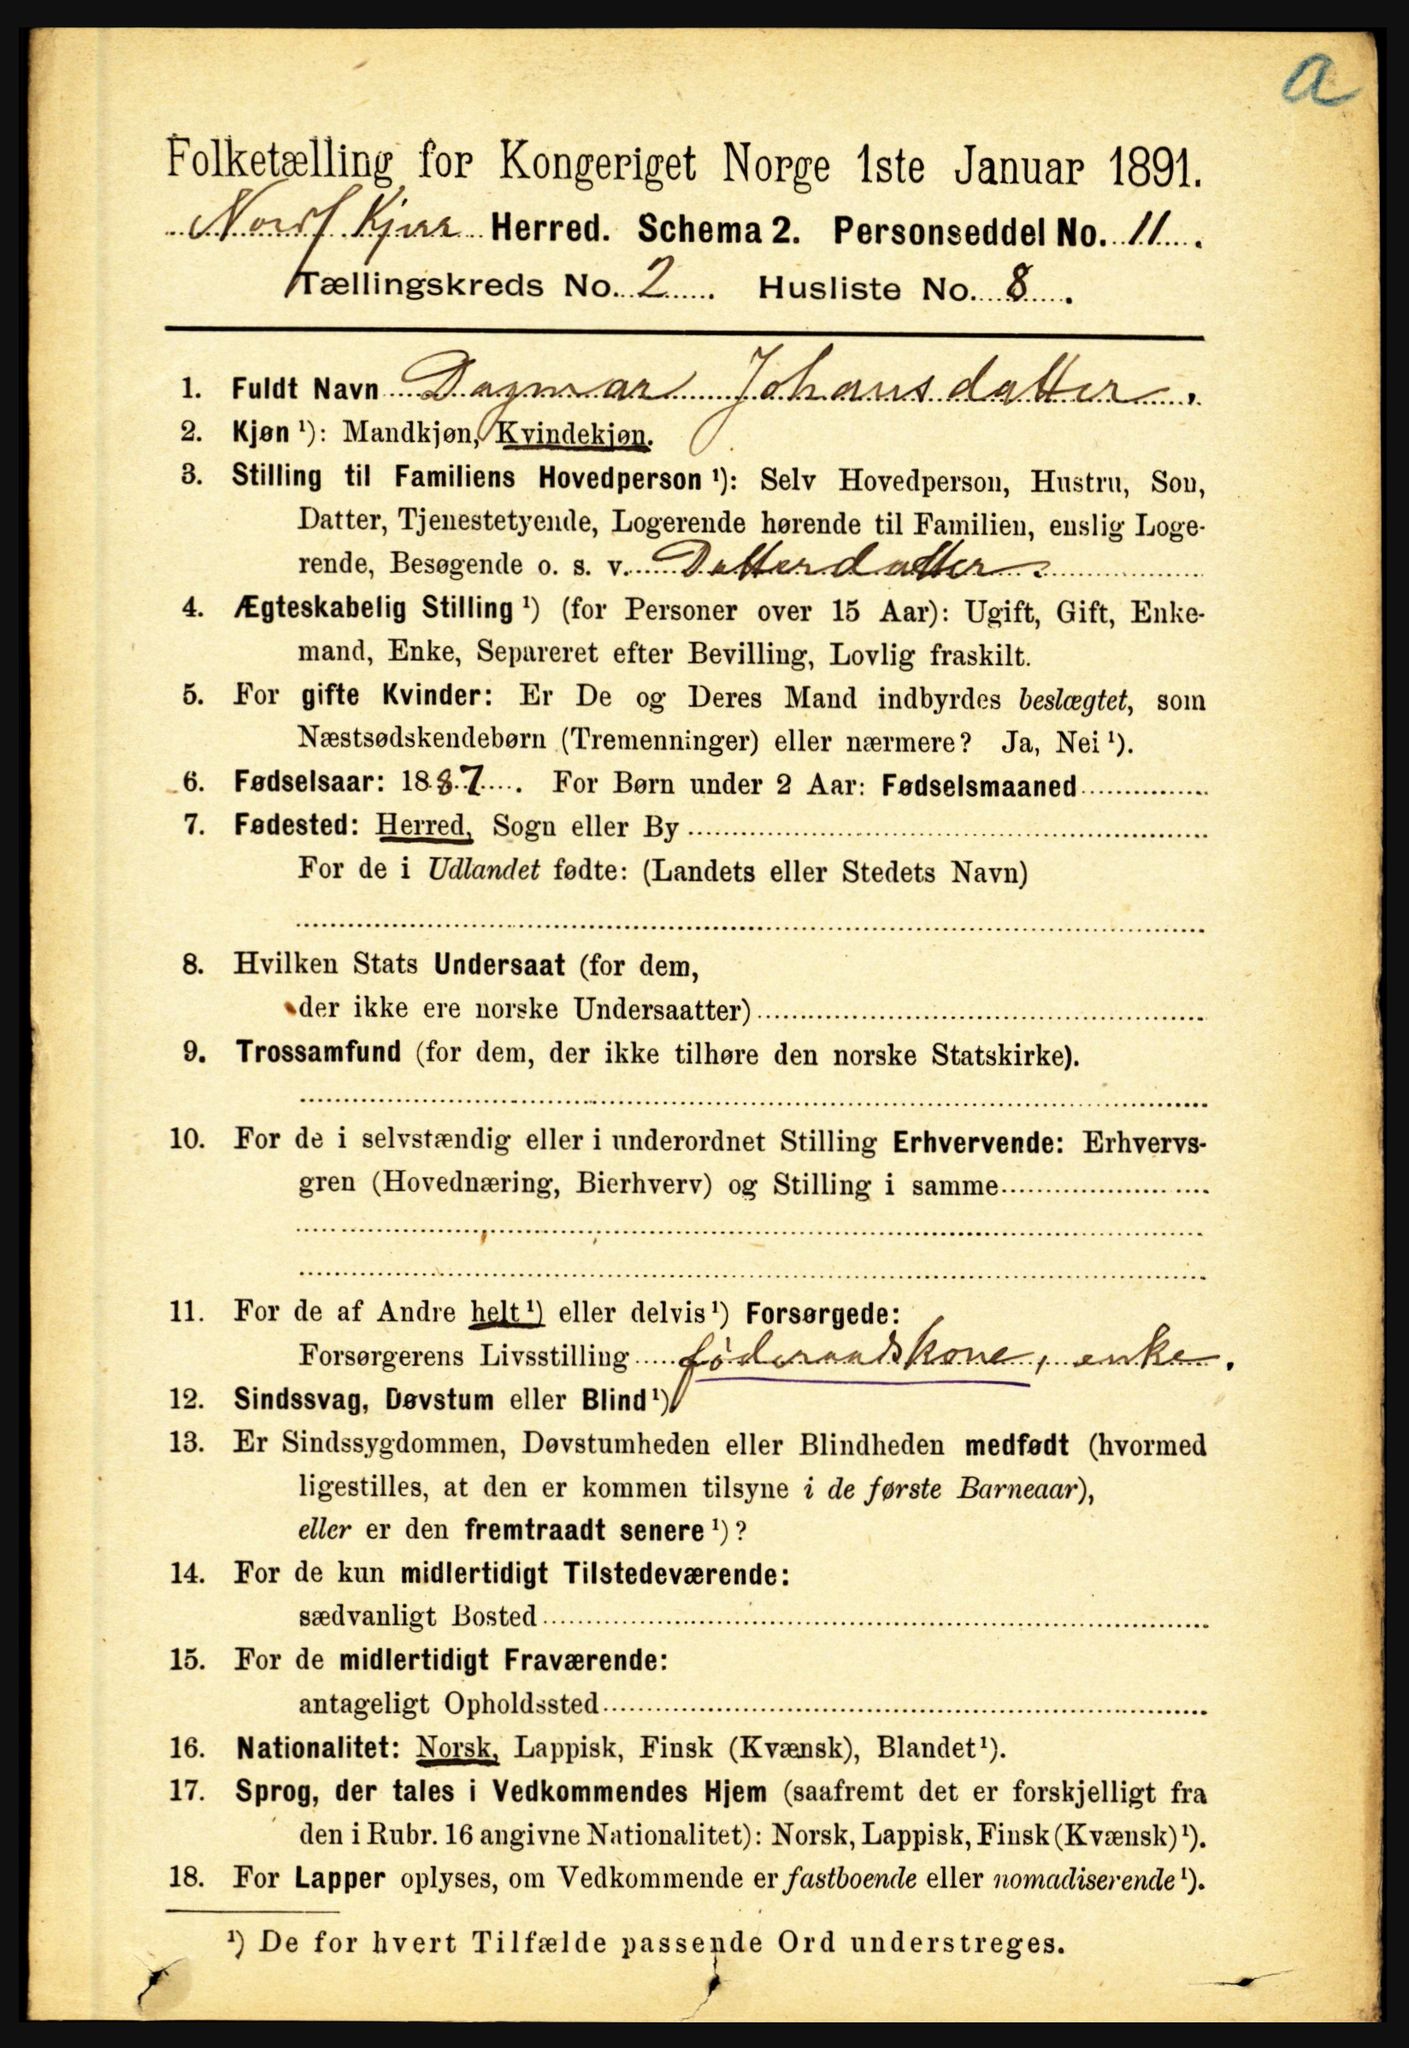 a
Folketælling for Kongeriget Norge 1ste Januar 1891.
Herred. Schema 2. Personseddel No. 11.
Tællingskreds No. 2. Husliste No. 8.
1. Fuldt Navn Dagmar Johansdatter.
2. Kjøn ¹): Mandkjøn, Kvindekjøn.
3. Stilling til Familiens Hovedperson ¹): Selv Hovedperson, Hustru, Søn,
Datter, Tjenestetyende, Logerende hørende til Familien, enslig Loge-
rende, Besøgende o. s. v. Datterdatter.
4. Ægteskabelig Stilling ¹) (for Personer over 15 Aar): Ugift, Gift, Enke-
mand, Enke, Separeret efter Bevilling, Lovlig fraskilt.
5. For gifte Kvinder: Er De og Deres Mand indbyrdes beslægtet, som
Næstsødskendebørn (Tremenninger) eller nærmere? Ja, Nei ¹).
6. Fødselsaar: 1887. For Børn under 2 Aar: Fødselsmaaned
7. Fødested: Herred, Sogn eller By
For de i Udlandet fødte: (Landets eller Stedets Navn)
8. Hvilken Stats Undersaat (for dem,
der ikke ere norske Undersaatter)
9. Trossamfund (for dem, der ikke tilhøre den norske Statskirke).
10. For de i selvstændig eller i underordnet Stilling Erhvervende: Erhvervs-
gren (Hovednæring, Bierhverv) og Stilling i samme
11. For de af Andre helt ¹) eller delvis ¹) Forsørgede:
Forsørgerens Livsstilling føderaadskone, enke.
12. Sindssvag, Døvstum eller Blind ¹)
13. Er Sindssygdommen, Døvstumheden eller Blindheden medfødt (hvormed
ligestilles, at den er kommen tilsyne i de første Barneaar),
eller er den fremtraadt senere ¹)?
14. For de kun midlertidigt Tilstedeværende:
sædvanligt Bosted
15. For de midlertidigt Fraværende:
antageligt Opholdssted
16. Nationalitet: Norsk, Lappisk, Finsk (Kvænsk), Blandet ¹).
17. Sprog, der tales i Vedkommendes Hjem (saafremt det er forskjelligt fra
den i Rubr. 16 angivne Nationalitet): Norsk, Lappisk, Finsk (Kvænsk) ¹).
18. For Lapper oplyses, om Vedkommende er fastboende eller nomadiserende ¹).
¹) De for hvert Tilfælde passende Ord understreges.